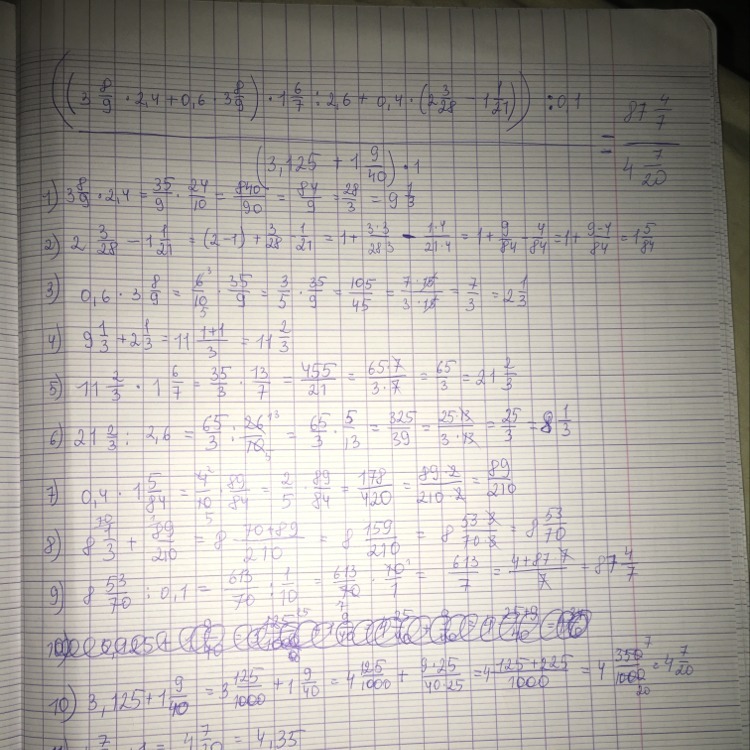 ((3 8/9 · 2,4 + 0,6 · 3 8/9) · 1 6/7 : 2,6 + 0,4 · (2 3/28 - 1 1/21)) : 0,1
(3,125 + 1 9/40) · 1
= 87 4/7 / 4 7/20
1) 3 8/9 · 2,4 = 35/9 · 24/10 = 840/90 = 84/9 = 28/3 = 9 1/3
2) 2 3/28 - 1 1/21 = (2-1) + 3/28 - 1/21 = 1 + 3·3/28·3 - 1·4/21·4 = 1 + 9/84 - 4/84 = 1 + 9-4/84 = 1 5/84
3) 0,6 · 3 8/9 = 6/10 · 35/9 = 3/5 · 35/9 = 105/45 = 7·15/3·15 = 7/3 = 2 1/3
4) 9 1/3 + 2 1/3 = 11 1+1/3 = 11 2/3
5) 11 2/3 · 1 6/7 = 35/3 · 13/7 = 455/21 = 65·7/3·7 = 65/3 = 21 2/3
6) 21 2/3 : 2,6 = 65/3 : 26/10 = 65/3 · 5/13 = 325/39 = 25·13/3·13 = 25/3 = 8 1/3
7) 0,4 · 1 5/84 = 4/10 · 89/84 = 2/5 · 89/84 = 178/420 = 89·2/210·2 = 89/210
8) 8 1/3 + 89/210 = 8 70+89/210 = 8 159/210 = 8 53·3/70·3 = 8 53/70
9) 8 53/70 : 0,1 = 613/70 : 1/10 = 613/70 · 10/1 = 613/7 = 4+87·7/7 = 87 4/7
10) 3,125 + 1 9/40 = 3 125/1000 + 1 9/40 = 4 125/1000 + 9·25/40·25 = 4 125+225/1000 = 4 350/1000 = 4 7/20
4 7/20 = 4,35